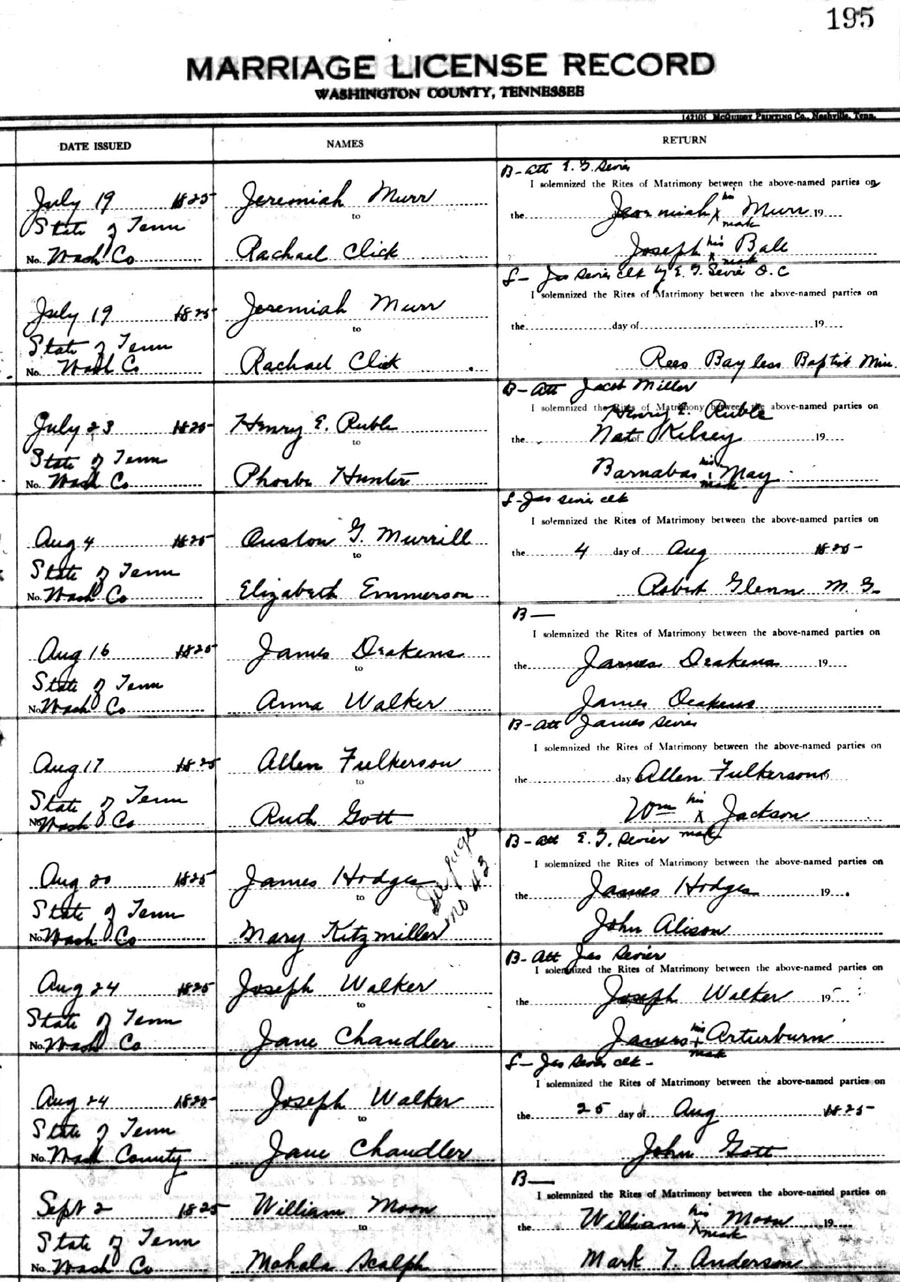 195
MARRIAGE LICENSE RECORD
WASHINGTON COUNTY, TENNESSEE
142101 McQuiddy Printing Co., Nashville, Tenn.
DATE ISSUED NAMES RETURN
B- Att E. G. Sevier
I solemnized the Rites of Matrimony between the above-named parties on
July 19 1825 Jeremiah Murr the Jeremiah his x mark Murr 19
State of Tenn to
No. Wash Co Rachael Click Joseph his x mark Ball
L- Jas Sevier Clk by E. G. Sevier D. C
I solemnized the Rites of Matrimony between the above-named parties on
July 19 1825 Jeremiah Murr the day of 19
State of Tenn to
No. Wash Co Rachael Click Rees Bayless Baptist Min.
B- Att Jacob Miller
I solemnized the Rites of Matrimony between the above-named parties on
Henry E. Ruble
July 23 1825 Henry E. Ruble the Nat Kelsey 19
State of Tenn to
No. Wash Co Phoebe Hunter Barnabas his x mark May
L- Jas Sevier Clk
I solemnized the Rites of Matrimony between the above-named parties on
Aug 4 1825 Auston G. Murrill the 4 day of Aug 1825
State of Tenn to
No. Wash Co Elizabeth Emmerson Robert Glenn M. G.
B-
I solemnized the Rites of Matrimony between the above-named parties on
Aug 16 1825 James Deakens the James Deakens 19
State of Tenn to
No. Wash Co Anna Walker James Deakens
B- Att James Sevier
I solemnized the Rites of Matrimony between the above-named parties on
Aug 17 1825 Allen Fulkerson the day Allen Fulkerson
State of Tenn to
No. Wash Co Ruth Gott Wm his x mark Jackson
B- Att E. G. Sevier
I solemnized the Rites of Matrimony between the above-named parties on
Aug 20 1825 James Hodges See page no 43 the James Hodges 19
State of Tenn to
No. Wash Co Mary Kitzmiller John Alison
B- Att Jas Sevier
I solemnized the Rites of Matrimony between the above-named parties on
Aug 24 1825 Joseph Walker the Joseph Walker 19
State of Tenn to
No. Wash Co Jane Chandler James his x mark Arterburn
L- Jas Sevier Clk -
I solemnized the Rites of Matrimony between the above-named parties on
Aug 24 1825 Joseph Walker the 25 day of Aug 1825
State of Tenn to
No. Wash County Jane Chandler John Gott
B-
I solemnized the Rites of Matrimony between the above-named parties on
Sept 2 1825 William Moon the William his x mark Moon 19
State of Tenn to
No. Wash Co Mahala Scalph Mark T. Anderson